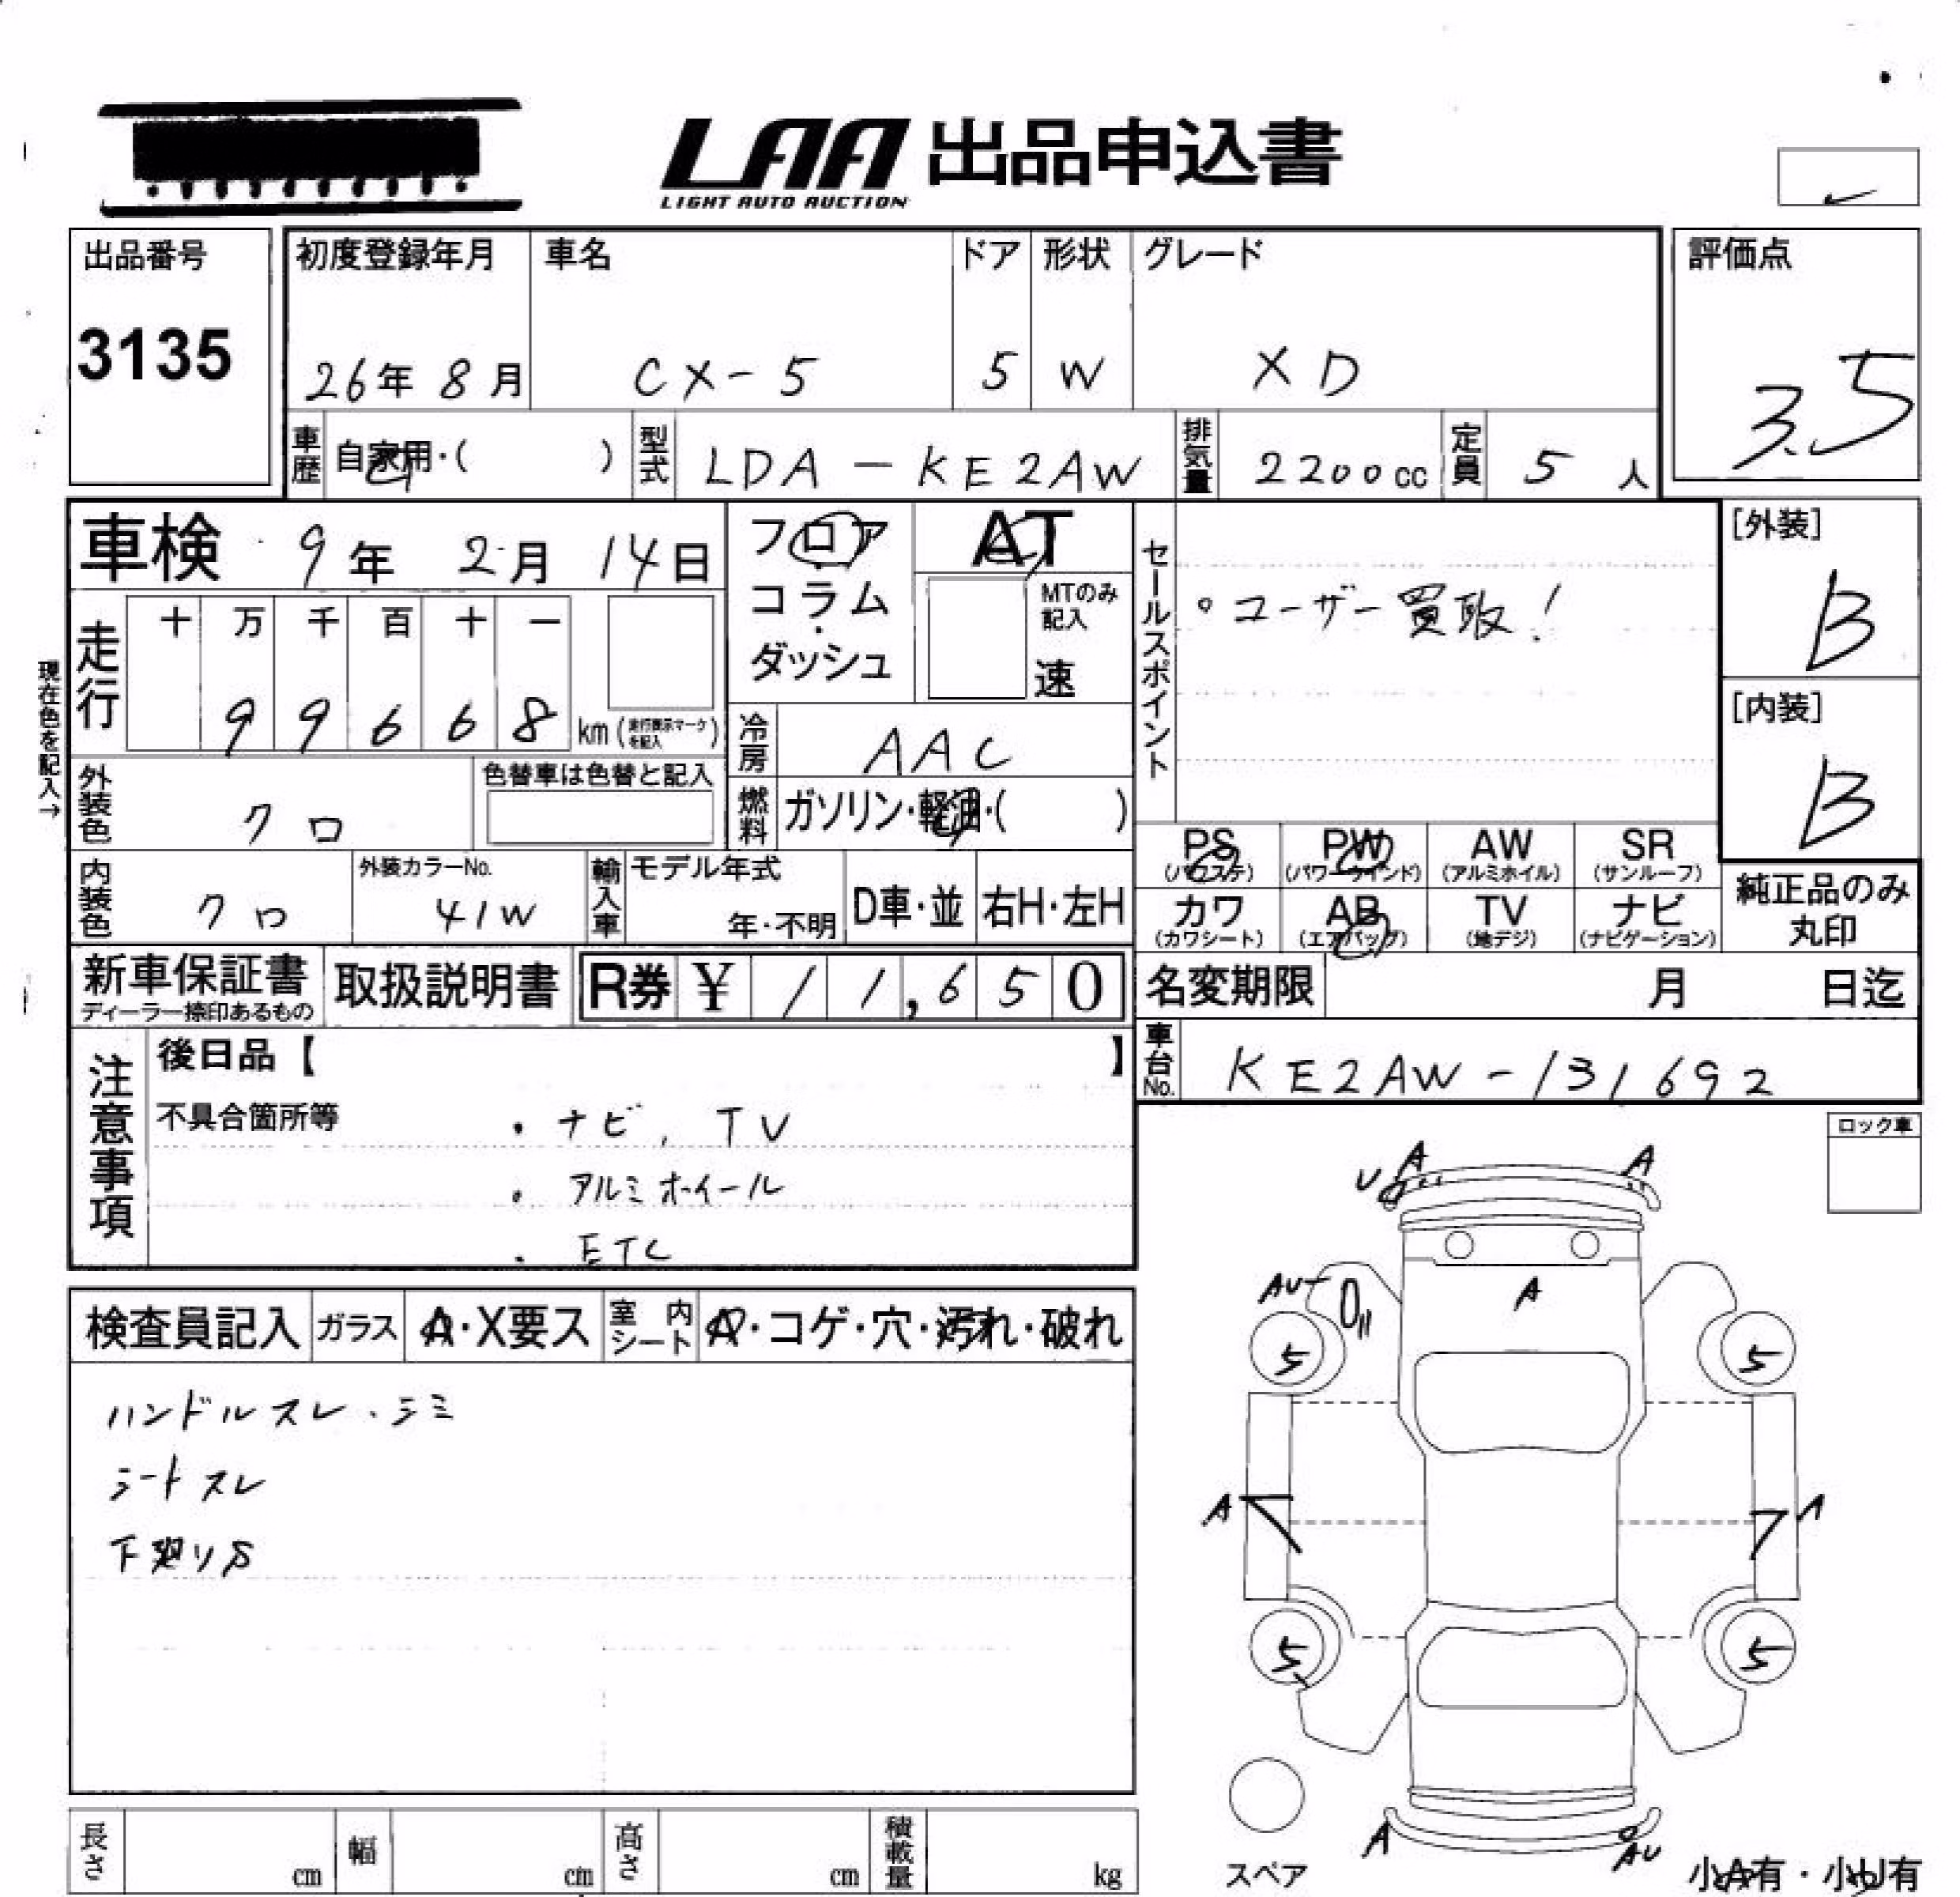 LAA 出品申込書
LIGHT AUTO AUCTION
出品番号
3135
初度登録年月
26年 8月
車名
CX-5
ドア
5
形状
W
グレード
XD
評価点
3.5
車歴 自家用・( )
型式 LDA-KE2AW
排気量 2200cc
定員 5人
車検 9年 2月 14日
フロア
コラム・
ダッシュ
AT
MTのみ記入
速
セールスポイント
○ユーザー買取!
[外装]
B
[内装]
B
現在色を記入→
走行 十 万 千 百 十 一
9 9 6 6 8 km (走行表示マークを記入)
冷房 AAC
燃料 ガソリン・軽油・( )
外装色 クロ
色替車は色替と記入
内装色 クロ
外装カラーNo.
41W
輸入車 モデル年式
年・不明
D車・並
右H・左H
PS (パワステ)
PW (パワーウインド)
AW (アルミホイル)
SR (サンルーフ)
カワ (カワシート)
AB (エアバッグ)
TV (地デジ)
ナビ (ナビゲーション)
純正品のみ
丸印
新車保証書
ディーラー捺印あるもの
取扱説明書
R券 ¥ 11,650
名変期限 月 日迄
車台No. KE2AW-131692
注意事項
後日品【 】
不具合箇所等
・ナビ, TV
・アルミホイール
・ETC
ロック車
検査員記入
ガラス A・X要ス
室内シート A・コゲ・穴・汚れ・破れ
ハンドルスレ・シミ
シートスレ
下廻りS
U A A
AU
A
5 5
A A
5 5
A AU
スペア
小A有・小U有
長さ cm
幅 cm
高さ cm
積載量 kg